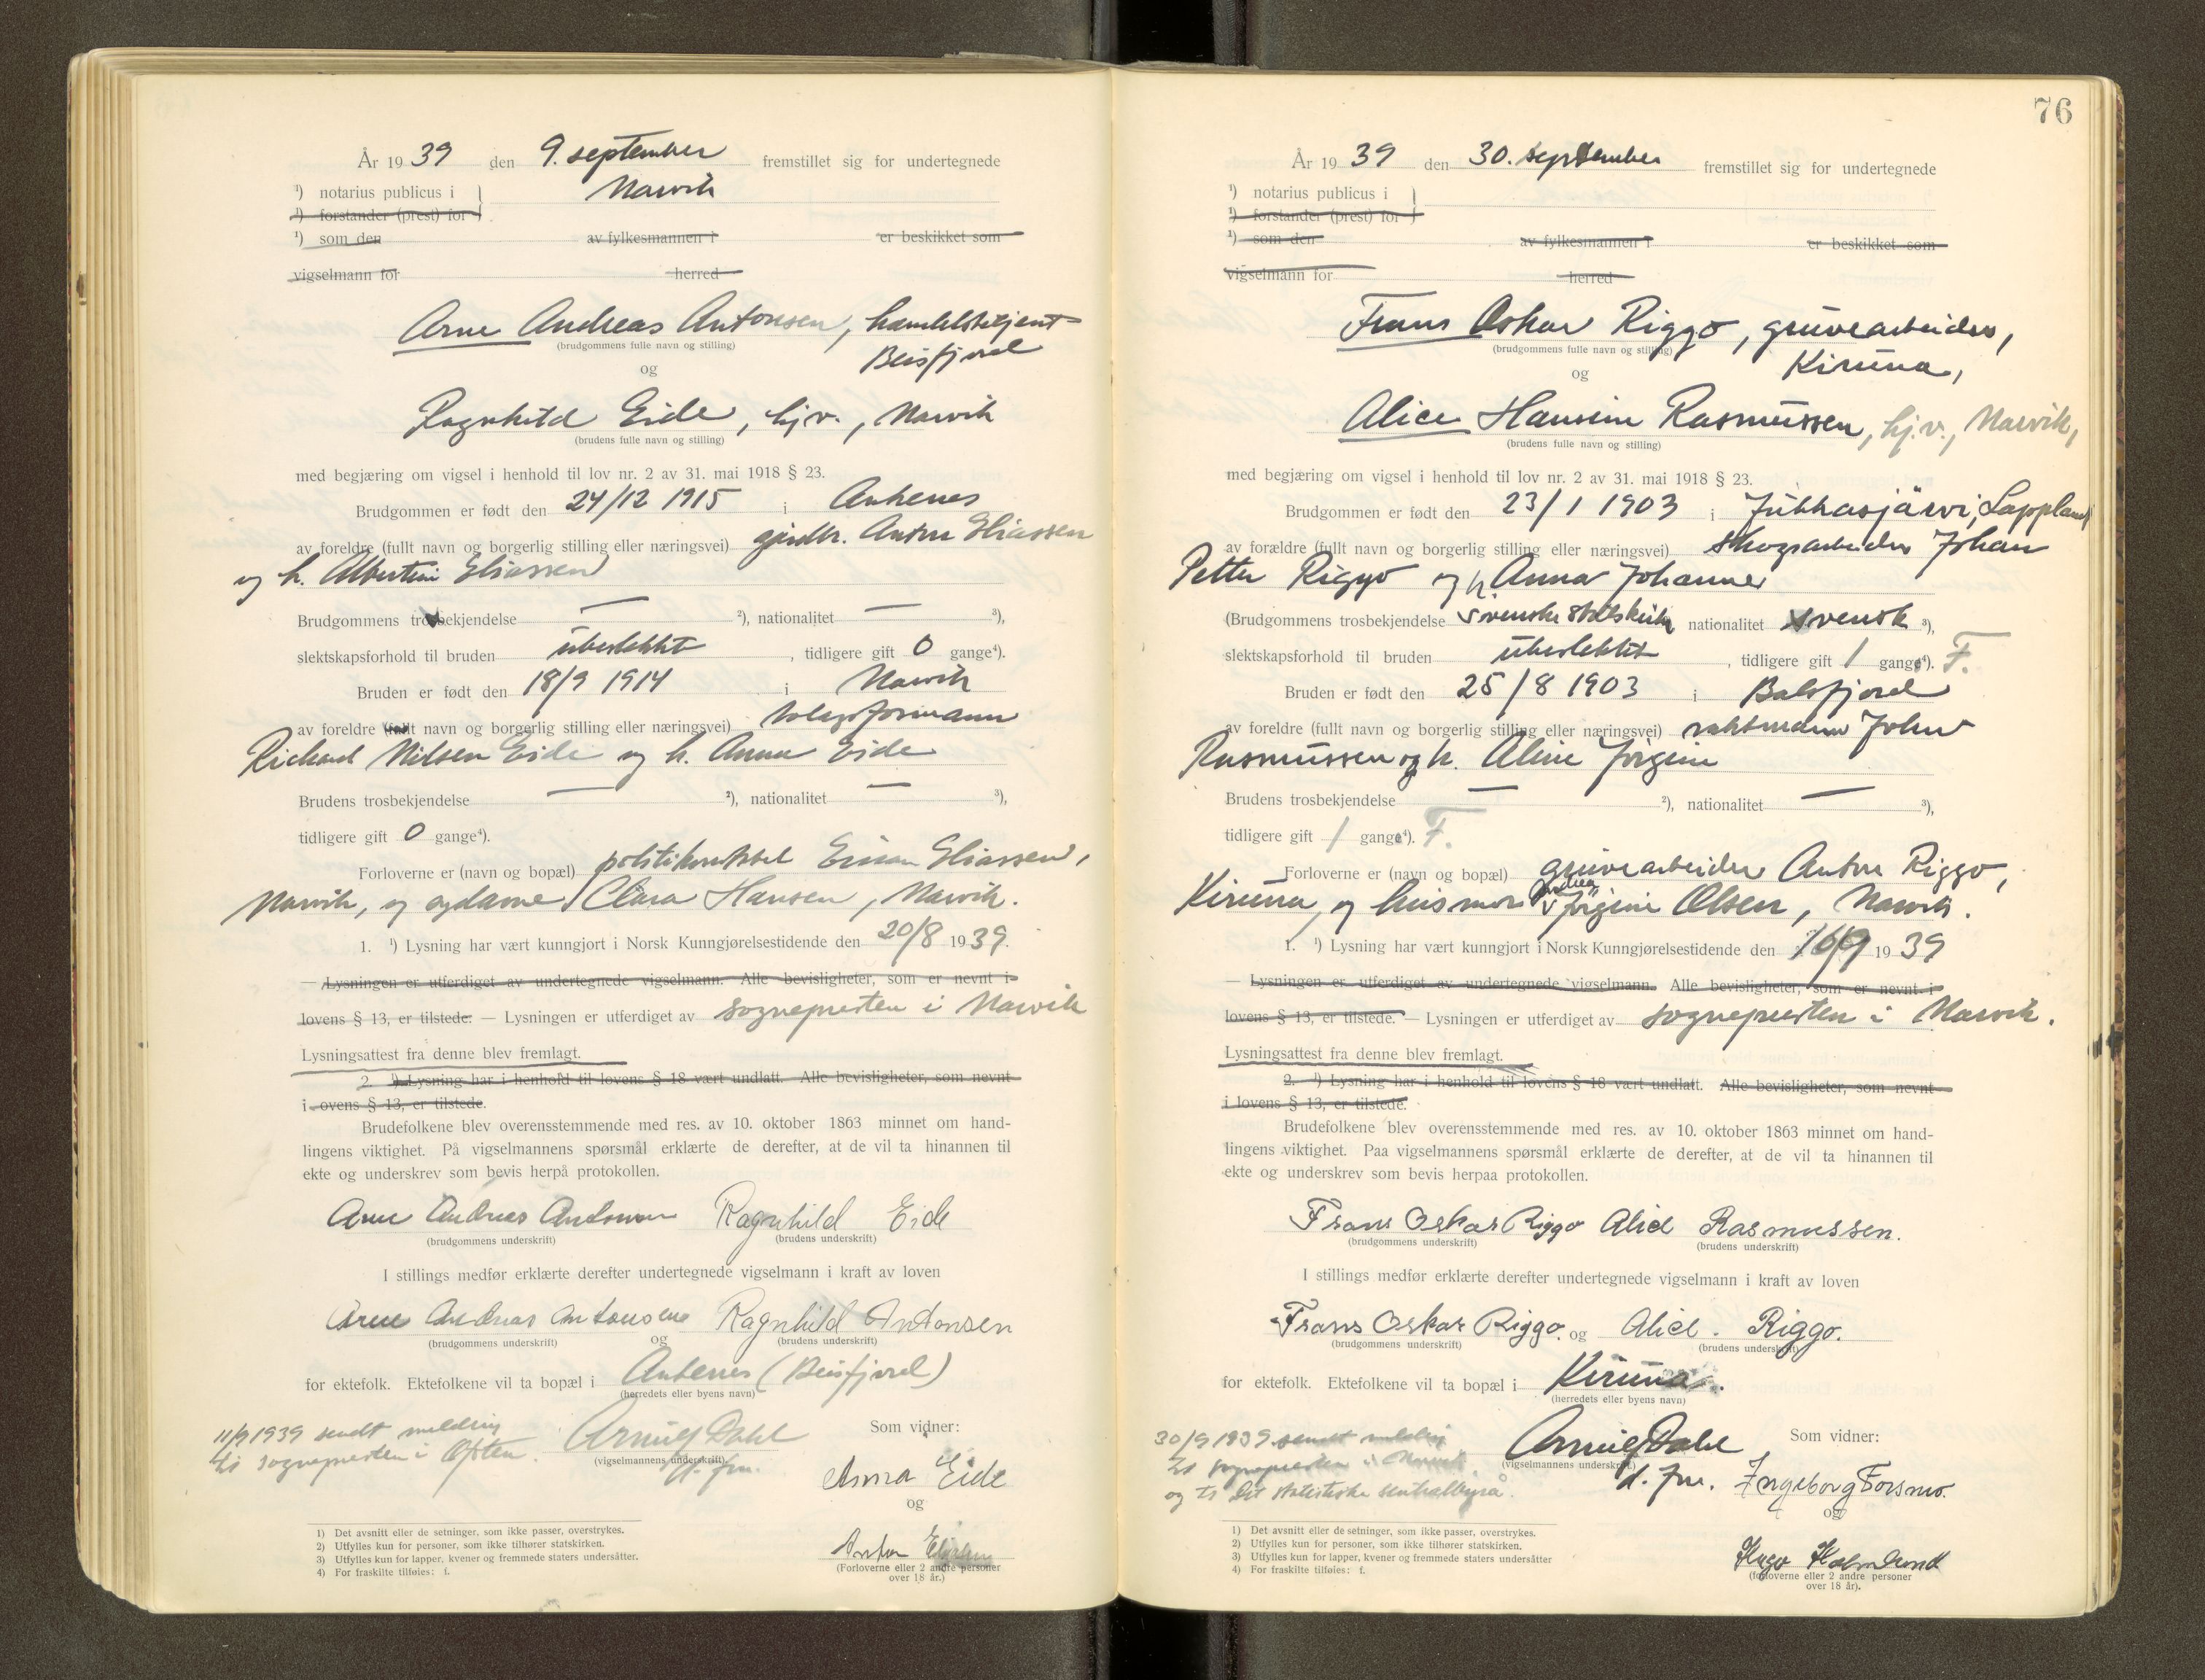 År 19 39 den 9. september fremstillet sig for undertegnede
¹) notarius publicus i Narvik
¹) forstander (prest) for
¹) som den av fylkesmannen i er beskikket som
vigselmann for herred
Arne Andreas Antonsen, handelsbetjent
(brudgommens fulle navn og stilling)
Beisfjord
og
Ragnhild Eide, hj.v., Narvik
(brudens fulle navn og stilling)
med begjæring om vigsel i henhold til lov nr. 2 av 31. mai 1918 § 23.
Brudgommen er født den 24/12 1915 i Ankenes
av foreldre (fullt navn og borgerlig stilling eller næringsvei) gårdbr. Anton Eliassen
og h. Albertine Eliassen
Brudgommens trosbekjendelse — ²), nationalitet — ³),
slektskapsforhold til bruden ubeslektet, tidligere gift 0 gange⁴).
Bruden er født den 18/9 1914 i Narvik
av foreldre (fullt navn og borgerlig stilling eller næringsvei)
Richard Nilsen Eide og h. Anna Eide
Brudens trosbekjendelse — ²), nationalitet — ³),
tidligere gift 0 gange⁴).
Forloverne er (navn og bopæl) politikonstabel Einar Eliassen,
Narvik, og Clara Hansen, Narvik.
1. ¹) Lysning har vært kunngjort i Norsk Kunngjørelsestidende den 20/8 1939.
— Lysningen er utferdiget av undertegnede vigselmann. Alle bevisligheter, som er nevnt i
lovens § 13, er tilstede. — Lysningen er utferdiget av sognepresten i Narvik
Lysningsattest fra denne blev fremlagt.
2. ¹) Lysning har i henhold til lovens § 18 vært undlatt. Alle bevisligheter, som nevnt
i lovens § 13, er tilstede.
Brudefolkene blev overensstemmende med res. av 10. oktober 1863 minnet om hand-
lingens viktighet. På vigselmannens spørsmål erklærte de derefter, at de vil ta hinannen til
ekte og underskrev som bevis herpå protokollen.
Arne Andreas Antonsen Ragnhild Eide
(brudgommens underskrift) (brudens underskrift)
I stillings medfør erklærte derefter undertegnede vigselmann i kraft av loven
Arne Andreas Antonsen Ragnhild Antonsen
(brudgommens underskrift) og (brudens underskrift)
for ektefolk. Ektefolkene vil ta bopæl i Ankenes (Beisfjord)
(herredets eller byens navn)
11/9 1939 sendt melding
til sognepresten i Ofoten.
Arnulf Dahl
(vigselmannens underskrift)
d. fm.
Som vidner:
Anna Eide
og
Anton Eliassen
(Forloverne eller 2 andre personer
over 18 år.)
1) Det avsnitt eller de setninger, som ikke passer, overstrykes.
2) Utfylles kun for personer, som ikke tilhører statskirken.
3) Utfylles kun for lapper, kvener og fremmede staters undersåtter.
4) For fraskilte tilføies: f.
76
År 19 39 den 30. september fremstillet sig for undertegnede
¹) notarius publicus i
¹) forstander (prest) for
¹) som den av fylkesmannen i er beskikket som
vigselmann for herred
Frans Oskar Riggo, gruvearbeider,
(brudgommens fulle navn og stilling)
Kiruna,
og
Alice Hansine Rasmussen, hj.v., Narvik,
(brudens fulle navn og stilling)
med begjæring om vigsel i henhold til lov nr. 2 av 31. mai 1918 § 23.
Brudgommen er født den 23/1 1903 i Jukkasjärvi, Lappland
av forældre (fullt navn og borgerlig stilling eller næringsvei) skogsarbeider Johan
Petter Riggo og h. Anna Johanna
(Brudgommens trosbekjendelse svenske statskirke nationalitet svensk ³),
slektskapsforhold til bruden ubeslektet, tidligere gift 1 gang⁴). F.
Bruden er født den 25/8 1903 i Balsfjord
av foreldre (fullt navn og borgerlig stilling eller næringsvei) vaktmann Johan
Rasmussen og h. Aline Jørgine
Brudens trosbekjendelse — ²), nationalitet — ³),
tidligere gift 1 gang⁴). F.
Forloverne er (navn og bopæl) gruvearbeider Anton Riggo,
Kiruna, og husmor Andrea Jørgine Olsen, Narvik.
1. ¹) Lysning har vært kunngjort i Norsk Kunngjørelsestidende den 16/9 1939
— Lysningen er utferdiget av undertegnede vigselmann. Alle bevisligheter, som er nevnt i
lovens § 13, er tilstede. — Lysningen er utferdiget av sognepresten i Narvik.
Lysningsattest fra denne blev fremlagt.
2. ¹) Lysning har i henhold til lovens § 18 vært undlatt. Alle bevisligheter, som nevnt
i lovens § 13, er tilstede.
Brudefolkene blev overensstemmende med res. av 10. oktober 1863 minnet om hand-
lingens viktighet. Paa vigselmannens spørsmål erklærte de derefter, at de vil ta hinannen til
ekte og underskrev som bevis herpaa protokollen.
Frans Oskar Riggo Alice Rasmussen.
(brudgommens underskrift) (brudens underskrift)
I stillings medfør erklærte derefter undertegnede vigselmann i kraft av loven
Frans Oskar Riggo. og Alice. Riggo.
(brudgommens underskrift) (brudens underskrift)
for ektefolk. Ektefolkene vil ta bopæl i Kiruna.
(herredets eller byens navn)
30/9 1939 sendt melding
til sognepresten i Narvik
og til Det statistiske sentralbyrå.
Arnulf Dahl
(vigselmannens underskrift)
d. fm.
Som vidner:
Ingeborg Forsmo.
og
Hugo Holmlund
(forloverne eller 2 andre personer
over 18 år).
1) Det avsnitt eller de setninger, som ikke passer, overstrykes.
2) Utfylles kun for personer, som ikke tilhører statskirken.
3) Utfylles kun for lapper, kvener og fremmede staters undersåtter
4) For fraskilte tilføies: f.